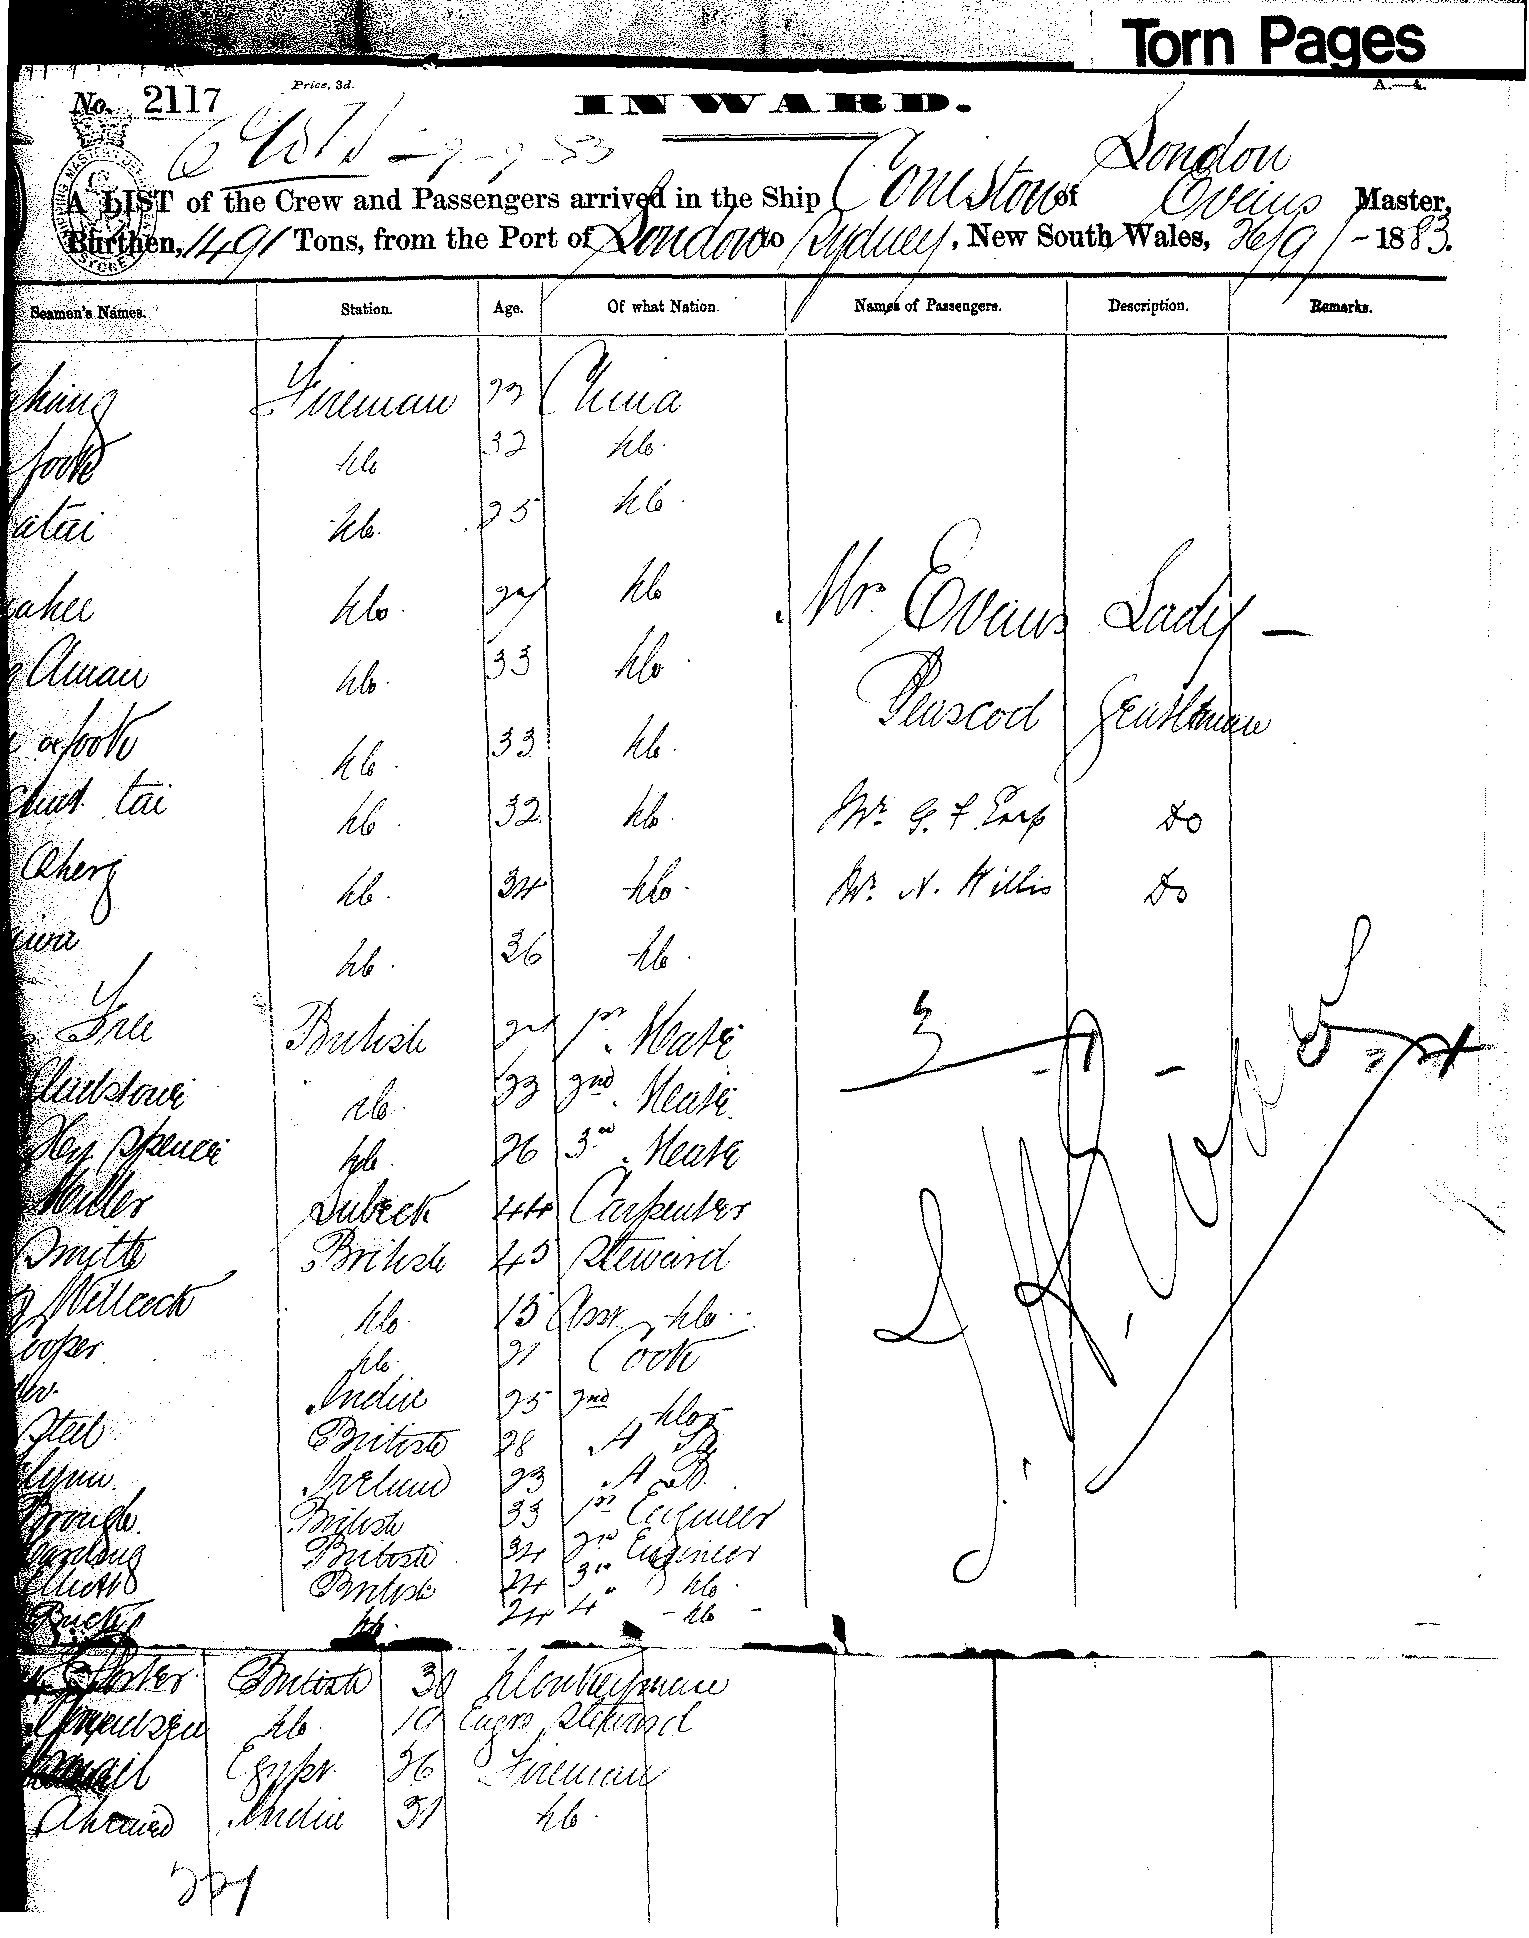 Torn Pages
A.—4.
Price, 3d.
No. 2117
INWARD.
London
A LIST of the Crew and Passengers arrived in the Ship Coniston of Evans Master,
Burthen, 1491 Tons, from the Port of London to Sydney, New South Wales, 26/9/-1883.
Seamen's Names. Station. Age. Of what Nation. Names of Passengers. Description. Remarks.
Fireman China
fook do 32 do.
atai do. 25 do.
ahee do. do Mrs Evans Lady —
Aman do. 33 do. Penscod Gentleman
afook do. 33 do.
tai do. 32 do. Mr. G. F. Earp Do
Aherg do. 34 do. Mr. N. Willis Do
do. 36 do.
Free British 1st Mate
Gladstone do. 33 2nd Mate
Hey Spence do. 26 3rd Mate
Miller Lubeck 44 Carpenter
Smith British 45 Steward
Willcock do. 15 Asst do.
Cooper do. 21 Cook
India 25 2nd do
Steel British 28 A B
Ireland 23 A B.
Brough British 33 1st Engineer
Harding British 34 2nd Engineer
Elliott British 24 3rd do.
Buck do. 24 4" - do -
Foster British 30 Donkeyman
do. 19 Engrs Steward
Ismail Egypt 36 Fireman
Ahamed India 31 do.